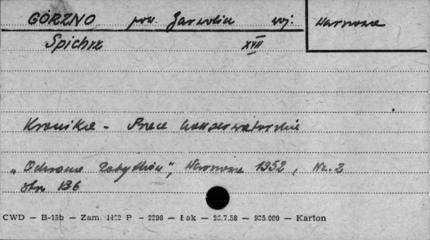 GÓRZNO pow. Garwolin woj. Warszawa
Spichrz XVIII
Kronika - Prace konserwatorskie
„Ochrona Zabytków", Warszawa 1952, Nr. 2
str. 136
CWD — B-15b — Zam. P — 2298 — — 25.7.58 — — Karton